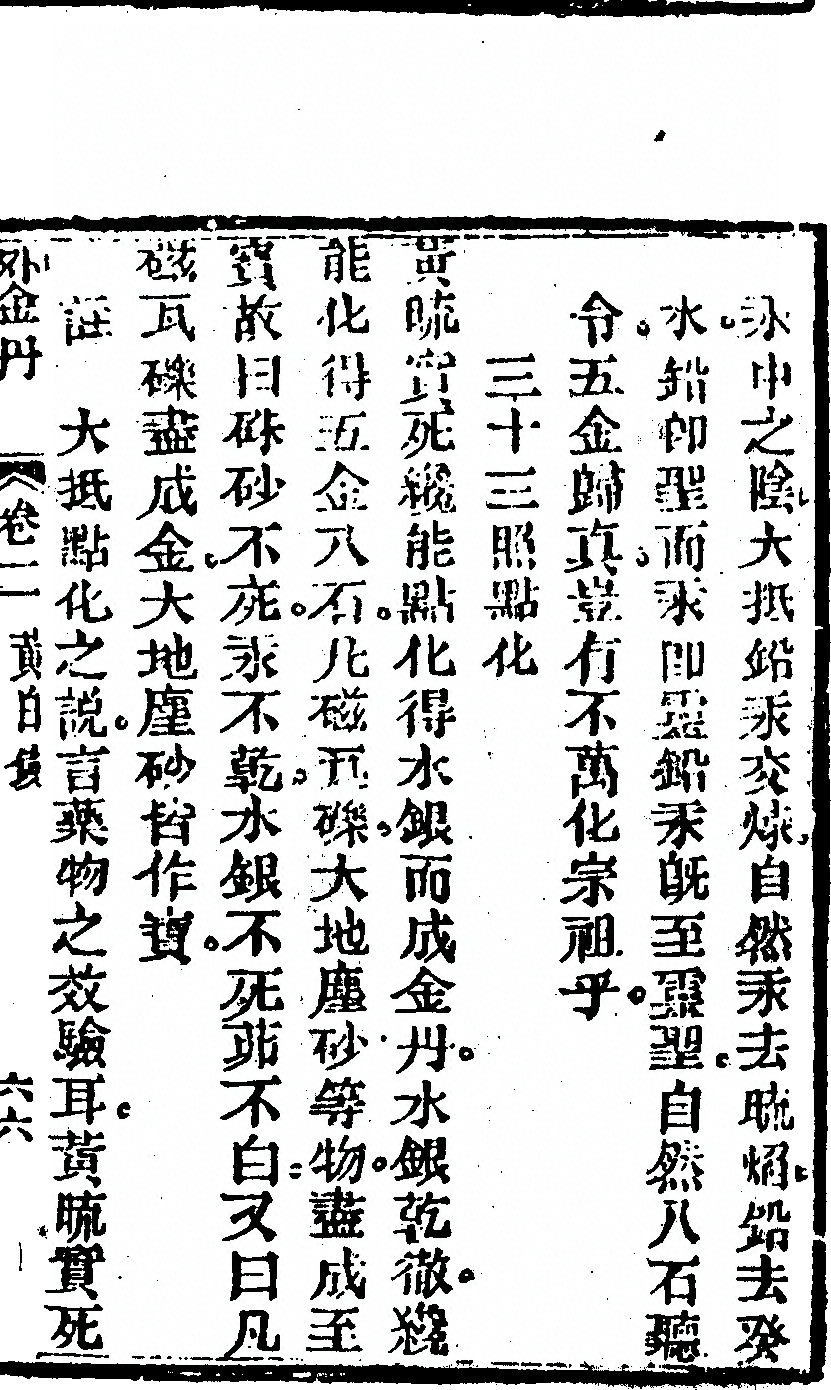 汞中之陰大抵鉛汞交煉自然汞去硫烟鉛去癸
水鉛即聖而汞即靈鉛汞旣至靈聖自然八石聽
令五金歸真豈有不萬化宗祖乎
三十三照點化
黃硫實死纔能點化得水銀而成金丹水銀乾徹纔
能化得五金八石凡磁瓦礫大地塵砂等物盡成至
寶故曰硃砂不死汞不乾水銀不死茆不白又曰凡
磁瓦礫盡成金大地塵砂皆作寶
註 大抵點化之說言藥物之效驗耳黃硫實死
外金丹 卷二 黃白鏡 六六